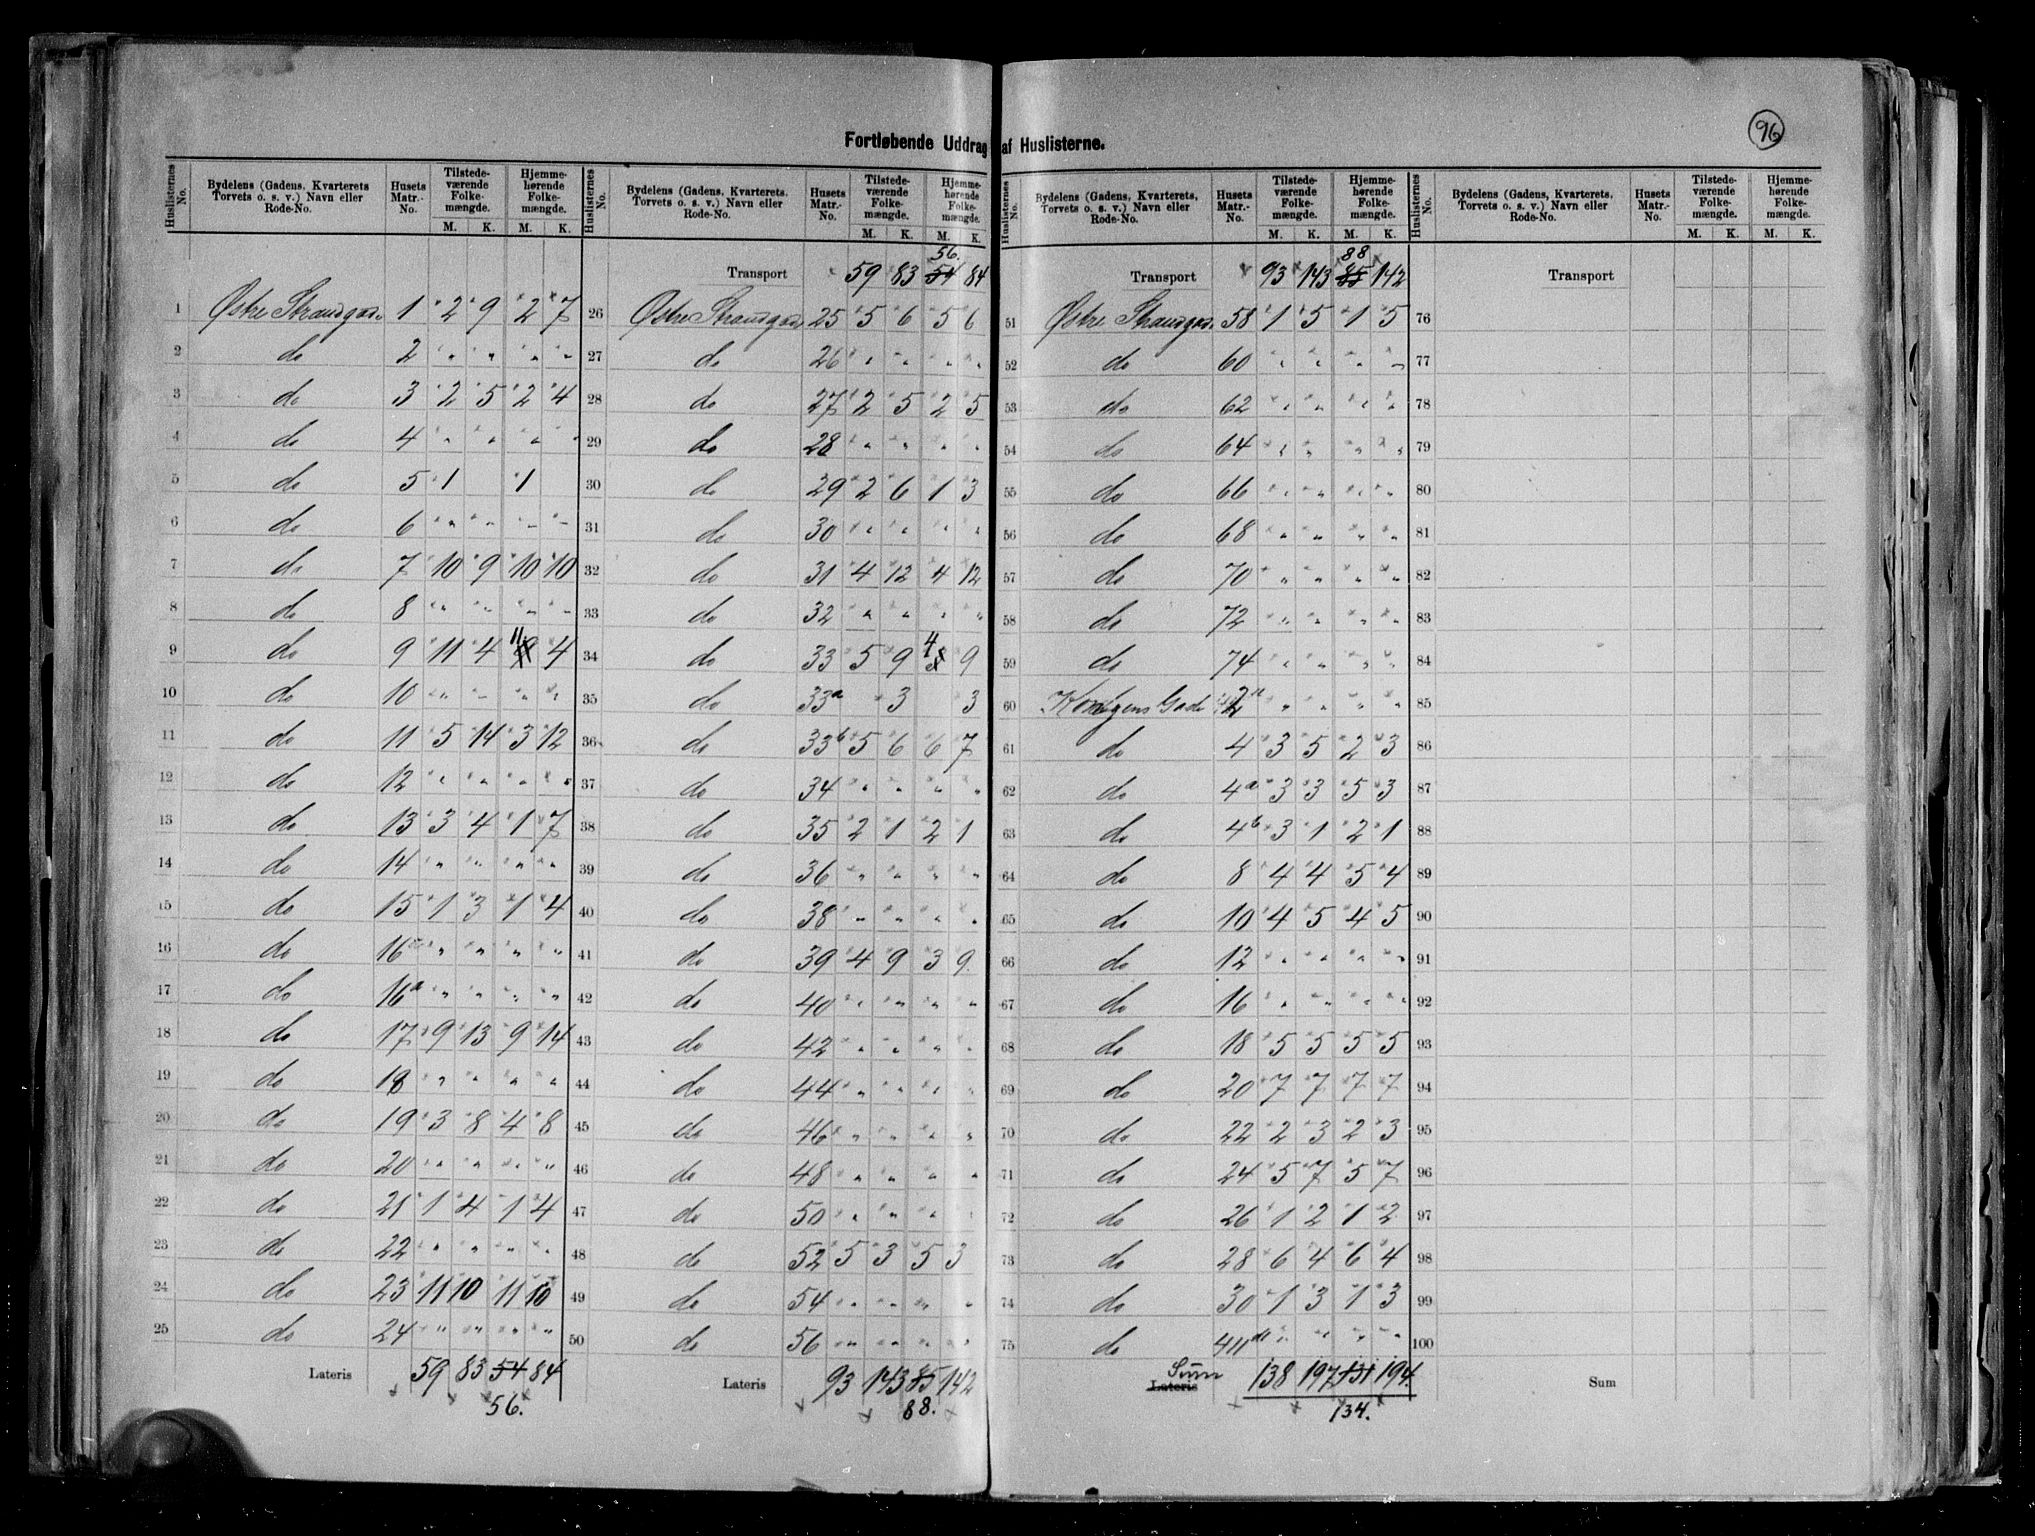 96
Fortløbende Uddrag af Huslisterne.
Huslisternes No. | Bydelens (Gadens, Kvarterets Torvets o. s. v.) Navn eller Rode-No. | Husets Matr.-No. | Tilstedeværende Folkemængde. M. K. | Hjemmehørende Folkemængde. M. K.
1 Østre Strandgade 1 2 9 2 7
2 do 2 " " " "
3 do 3 2 5 2 4
4 do 4 " " " "
5 do 5 1 1
6 do 6 " " " "
7 do 7 10 9 10 10
8 do 8 " " " "
9 do 9 11 4 11 4
10 do 10 " " " "
11 do 11 5 14 3 12
12 do 12 " " " "
13 do 13 3 4 1 7
14 do 14 " " " "
15 do 15 1 3 1 4
16 do 16 " " " "
17 do 16a " " " "
18 do 17 9 13 9 14
19 do 18 " " " "
20 do 19 3 8 4 8
21 do 20 " " " "
22 do 21 1 4 1 4
23 do 22 " " " "
24 do 23 11 10 11 10
25 do 24 " " " "
Lateris 59 83 54 84
56.
Huslisternes No. | Bydelens (Gadens, Kvarterets, Torvets o. s. v.) Navn eller Rode-No. | Husets Matr.-No. | Tilstedeværende Folkemængde. M. K. | Hjemmehørende Folkemængde. M. K.
56.
Transport 59 83 54 84
26 Østre Strandgade 25 5 6 5 6
27 do 26 " " " "
28 do 27 2 5 2 5
29 do 28 " " " "
30 do 29 2 6 1 3
31 do 30 " " " "
32 do 31 4 12 4 12
33 do 32 " " " "
34 do 33 5 9 4 9
35 do 33a 3 3
36 do 33b 5 6 6 7
37 do 34 " " " "
38 do 35 2 1 2 1
39 do 36 " " " "
40 do 38 " " " "
41 do 39 4 9 3 9
42 do 40 " " " "
43 do 42 " " " "
44 do 44 " " " "
45 do 46 " " " "
46 do 48 " " " "
47 do 50 " " " "
48 do 52 5 3 5 3
49 do 54 " " " "
50 do 56 " " " "
Lateris 93 143 85 142
88.
Huslisternes No. | Bydelens (Gadens, Kvarterets, Torvets o. s. v.) Navn eller Rode-No. | Husets Matr.-No. | Tilstedeværende Folkemængde. M. K. | Hjemmehørende Folkemængde. M. K.
88
Transport 93 143 85 142
51 Østre Strandgade 58 1 5 1 5
52 do 60 " " " "
53 do 62 " " " "
54 do 64 " " " "
55 do 66 " " " "
56 do 68 " " " "
57 do 70 " " " "
58 do 72 " " " "
59 do 74 " " " "
60 Kongens Gade 2 " " " "
61 do 4 3 5 2 3
62 do 4a 3 3 5 3
63 do 4b 3 1 2 1
64 do 8 4 4 5 4
65 do 10 4 5 4 5
66 do 12 " " " "
67 do 16 " " " "
68 do 18 5 5 5 5
69 do 20 7 7 7 7
70 do 22 2 3 2 3
71 do 24 5 7 5 7
72 do 26 1 2 1 2
73 do 28 6 4 6 4
74 do 30 1 3 1 3
75 do 411 " " " "
Sum
Lateris 138 197 131 194.
134.
Huslisternes No. | Bydelens (Gadens, Kvarterets, Torvets o. s. v.) Navn eller Rode-No. | Husets Matr.-No. | Tilstedeværende Folkemængde. M. K. | Hjemmehørende Folkemængde. M. K.
Transport
76
77
78
79
80
81
82
83
84
85
86
87
88
89
90
91
92
93
94
95
96
97
98
99
100
Sum